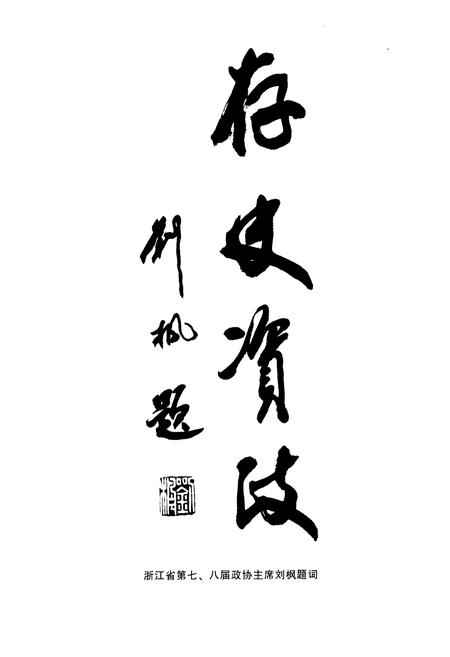 存史资政
刘枫题
浙江省第七、八届政协主席刘枫题词